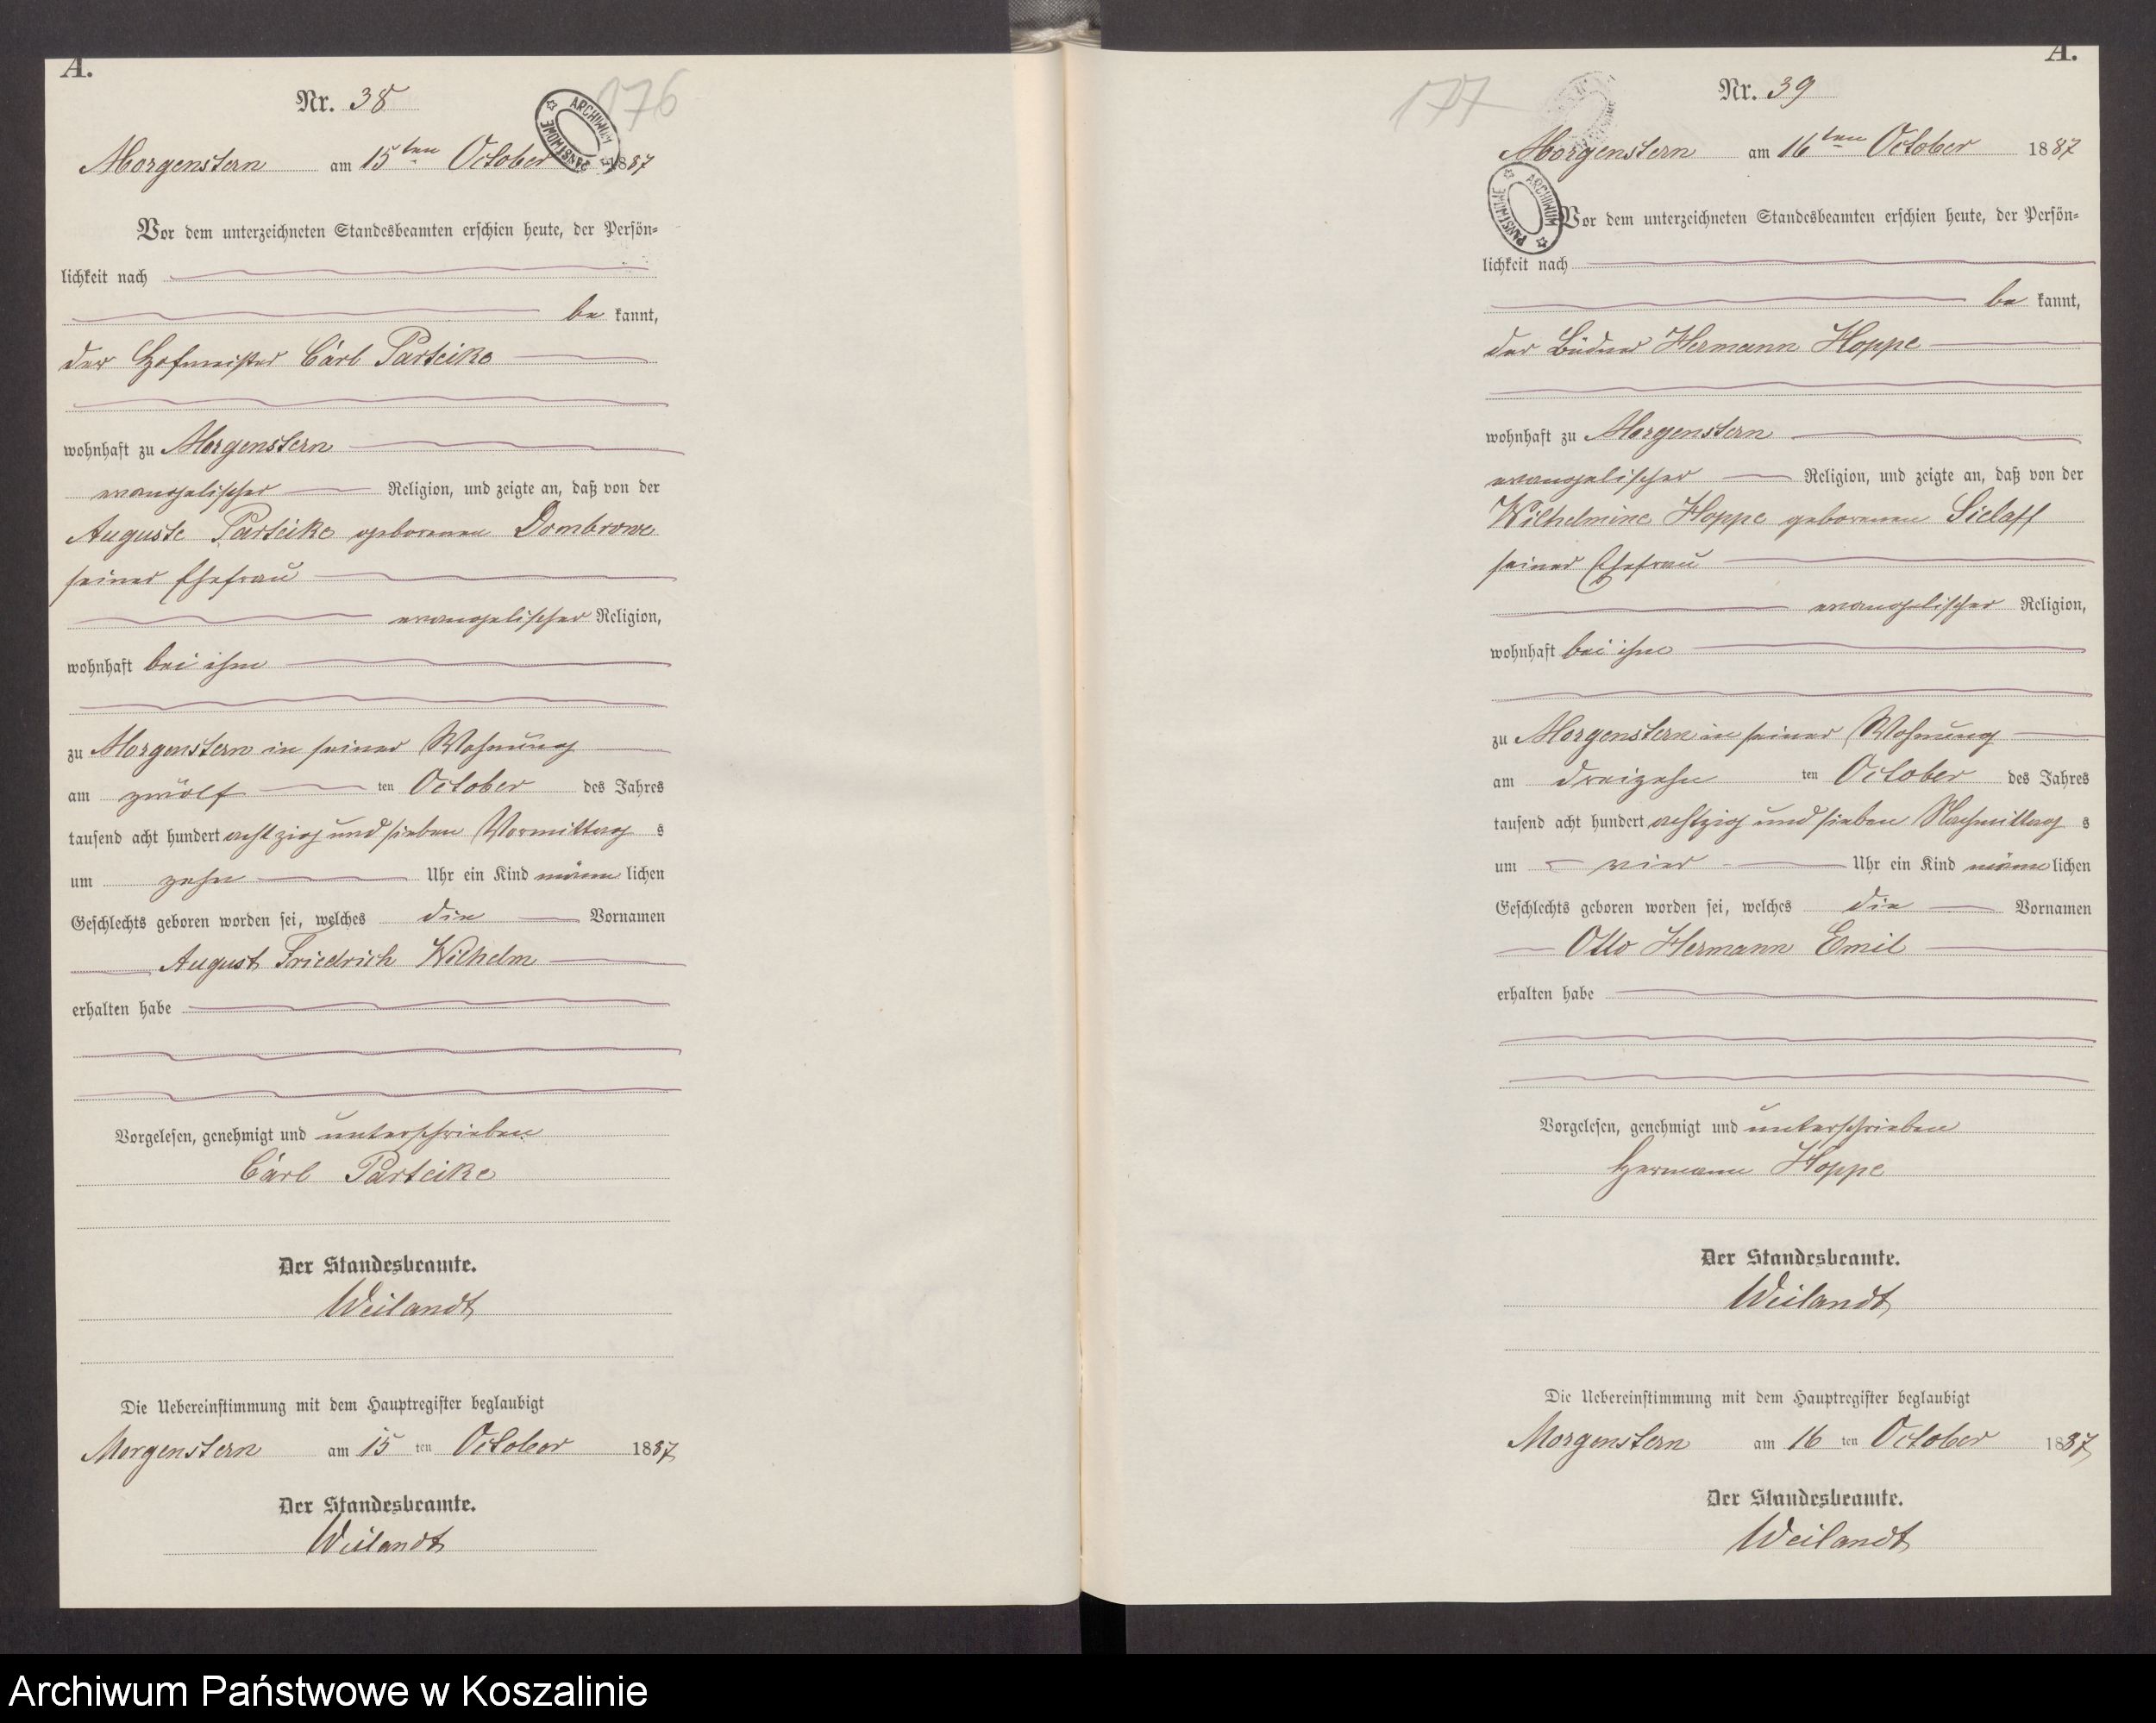 A.
Nr. 38
176
ARCHIWUM PAŃSTWOWE
Morgenstern am 15ten October 1887
Vor dem unterzeichneten Standesbeamten erschien heute, der Persön-
lichkeit nach
be kannt,
der Hofmeister Carl Parteike
wohnhaft zu Morgenstern
evangelischer Religion, und zeigte an, daß von der
Auguste Parteike geborenen Dombrowe
seiner Ehefrau
evangelischer Religion,
wohnhaft bei ihm
zu Morgenstern in seiner Wohnung
am zwölf ten October des Jahres
tausend acht hundert achtzig und sieben Vormittag s
um zehn Uhr ein Kind männ lichen
Geschlechts geboren worden sei, welches die Vornamen
August Friedrich Wilhelm
erhalten habe
Vorgelesen, genehmigt und unterschrieben
Carl Parteike
Der Standesbeamte.
Weilandt
Die Uebereinstimmung mit dem Hauptregister beglaubigt
Morgenstern am 15 ten October 1887
Der Standesbeamte.
Weilandt
A.
Nr. 39
177
Morgenstern am 16ten October 1887
ARCHIWUM PAŃSTWOWE
Vor dem unterzeichneten Standesbeamten erschien heute, der Persön-
lichkeit nach
be kannt,
der Büdner Hermann Hoppe
wohnhaft zu Morgenstern
evangelischer Religion, und zeigte an, daß von der
Wilhelmine Hoppe geborenen Sielaff
seiner Ehefrau
evangelischer Religion,
wohnhaft bei ihm
zu Morgenstern in seiner Wohnung
am dreizehn ten October des Jahres
tausend acht hundert achtzig und sieben Nachmittag s
um vier Uhr ein Kind männ lichen
Geschlechts geboren worden sei, welches die Vornamen
Otto Hermann Emil
erhalten habe
Vorgelesen, genehmigt und unterschrieben
Hermann Hoppe
Der Standesbeamte.
Weilandt
Die Uebereinstimmung mit dem Hauptregister beglaubigt
Morgenstern am 16 ten October 1887
Der Standesbeamte.
Weilandt
Archiwum Państwowe w Koszalinie